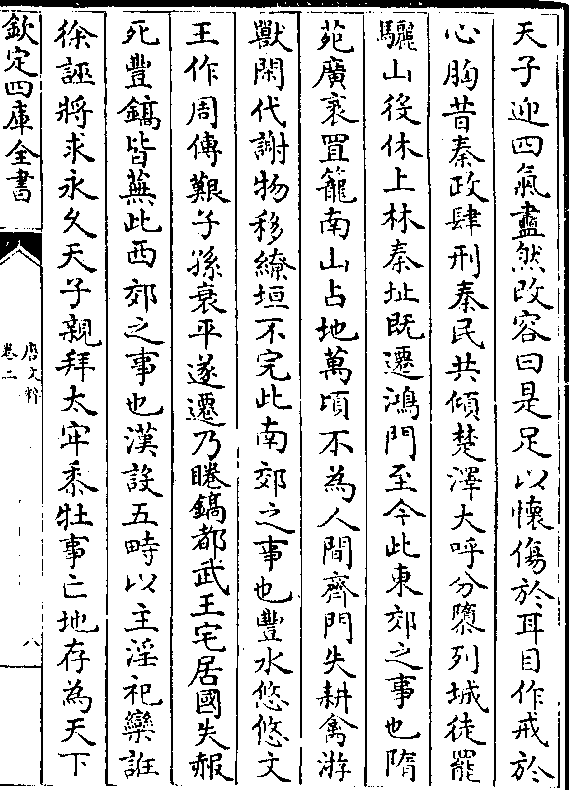 天子迎四氣盡然改容曰是足以懷傷於耳目作戒於
心胸昔秦政肆刑秦民共傾楚澤大呼分隳列城徒罷
驪山役休上林秦址既遷鴻門至今此東郊之事也隋
苑廣袤罝籠南山占地萬頃不為人間齊門失耕禽游
獸閑代謝物移繚垣不完此南郊之事也豐水悠悠文
王作周傳艱子孫衰平遂遷乃睠鎬都武王宅居國失赧
死豐鎬皆蕪此西郊之事也漢設五畤以主淫祀欒誑
徐誣將求永久天子親拜太牢黍牡事亡地存為天下
欽定四庫全書
唐文粹
卷二
八